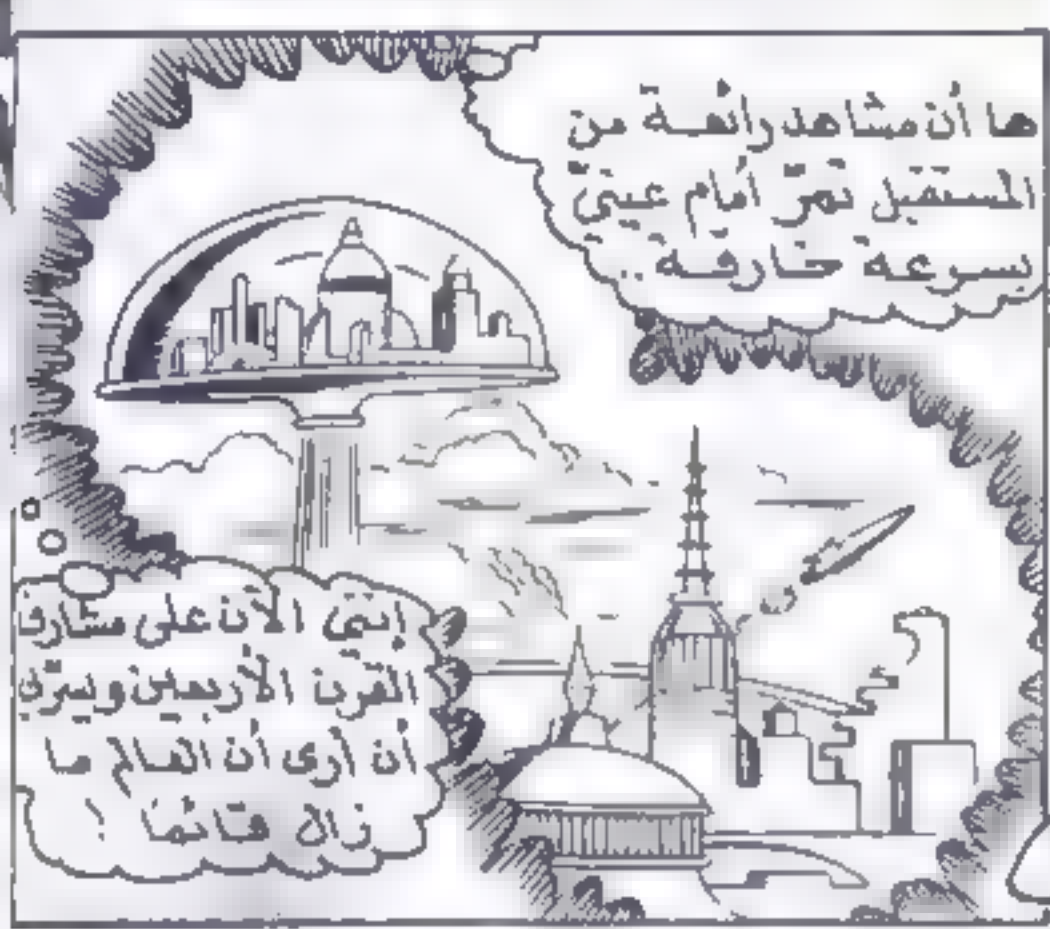 ها أن مشاهد رائعة من
المستقبل تمرّ أمام عينيّ
بسرعة خارقة ..
إنني الآن على مشارف
القرن الأربعين ويسرّني
أن أرى أن العالم ما
زال قائمًا !